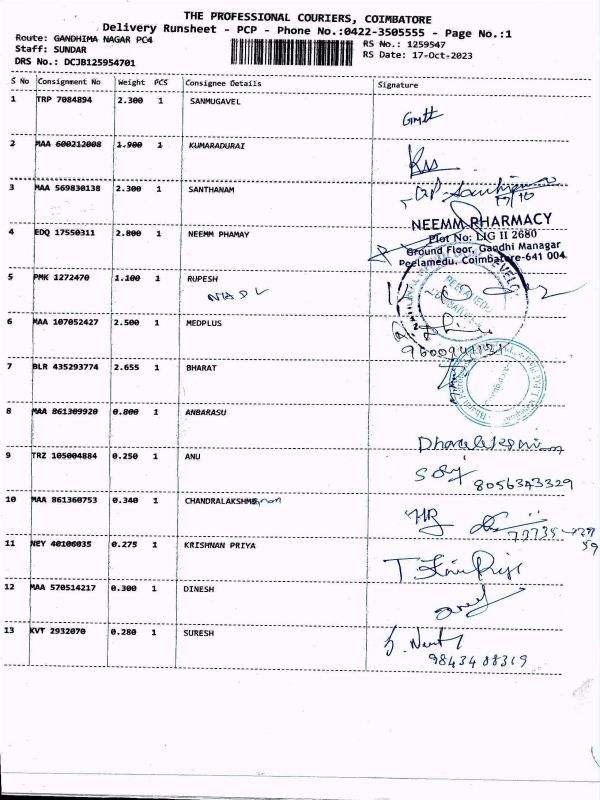 THE PROFESSIONAL COURIERS, COIMBATORE
Delivery Runsheet - PCP - Phone No.:0422-3505555 - Page No.:1
Route: GANDHIMA NAGAR PC4
RS No.: 1259547
Staff: SUNDAR
RS Date: 17-Oct-2023
DRS No.: DCJB125954701
S No Consignment No Weight PCS Consignee Details Signature
1 TRP 7084894 2.300 1 SANMUGAVEL
2 MAA 600212008 1.900 1 KUMARADURAI
3 MAA 569830138 2.300 1 SANTHANAM
17/10
4 EDQ 17550311 2.800 1 NEEMM PHAMAY
NEEMM PHARMACY
Plot No: LIG II 2680
Ground Floor, Gandhi Managar
Peelamedu, Coimbatore-641 004
5 PMK 1272470 1.100 1 RUPESH
6 MAA 107052427 2.500 1 MEDPLUS
7 BLR 435293774 2.655 1 BHARAT
8 MAA 861309920 0.800 1 ANBARASU
9 TRZ 105004884 0.250 1 ANU
8056343329
10 MAA 861360753 0.340 1
11 NEY 40106035 0.275 1 KRISHNAN PRIYA
12 MAA 570514217 0.300 1 DINESH
13 KVT 2932070 0.280 1 SURESH